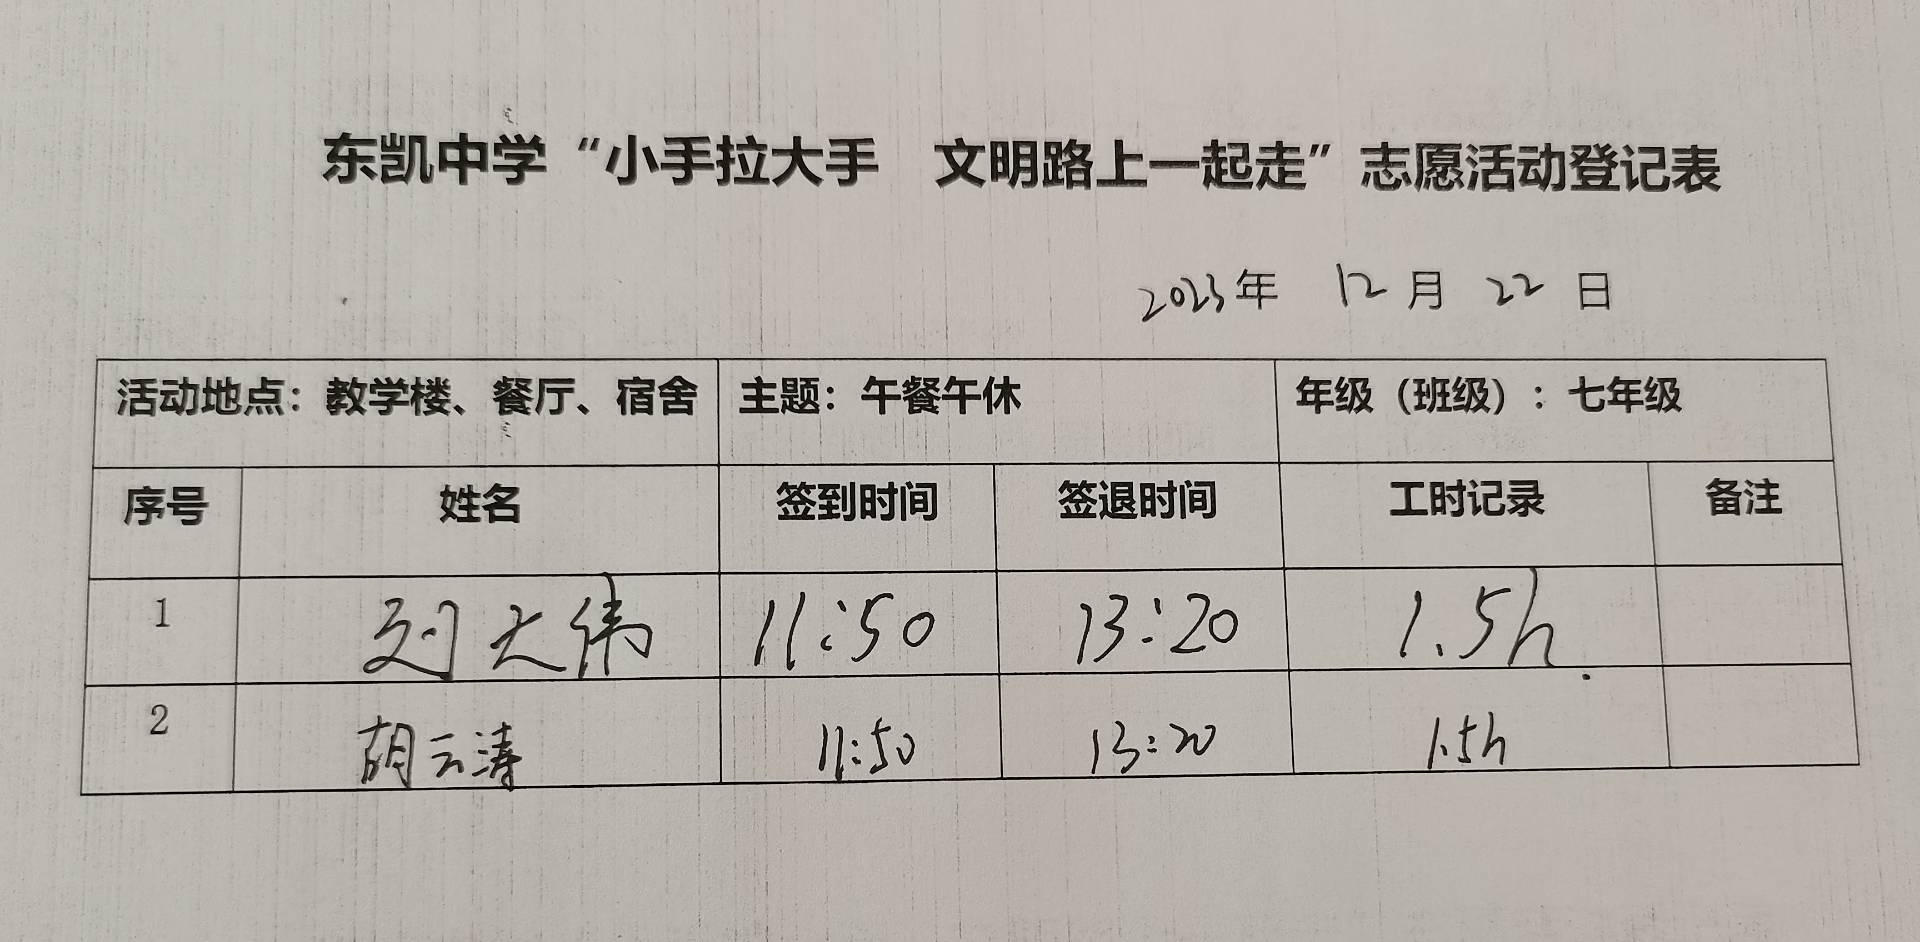 东凯中学“小手拉大手 文明路上一起走”志愿活动登记表
2023年 12月 22日
活动地点：教学楼、餐厅、宿舍 主题：午餐午休 年级（班级）：七年级
序号 姓名 签到时间 签退时间 工时记录 备注
1 刘大伟 11:50 13:20 1.5h
2 胡云涛 11:50 13:20 1.5h